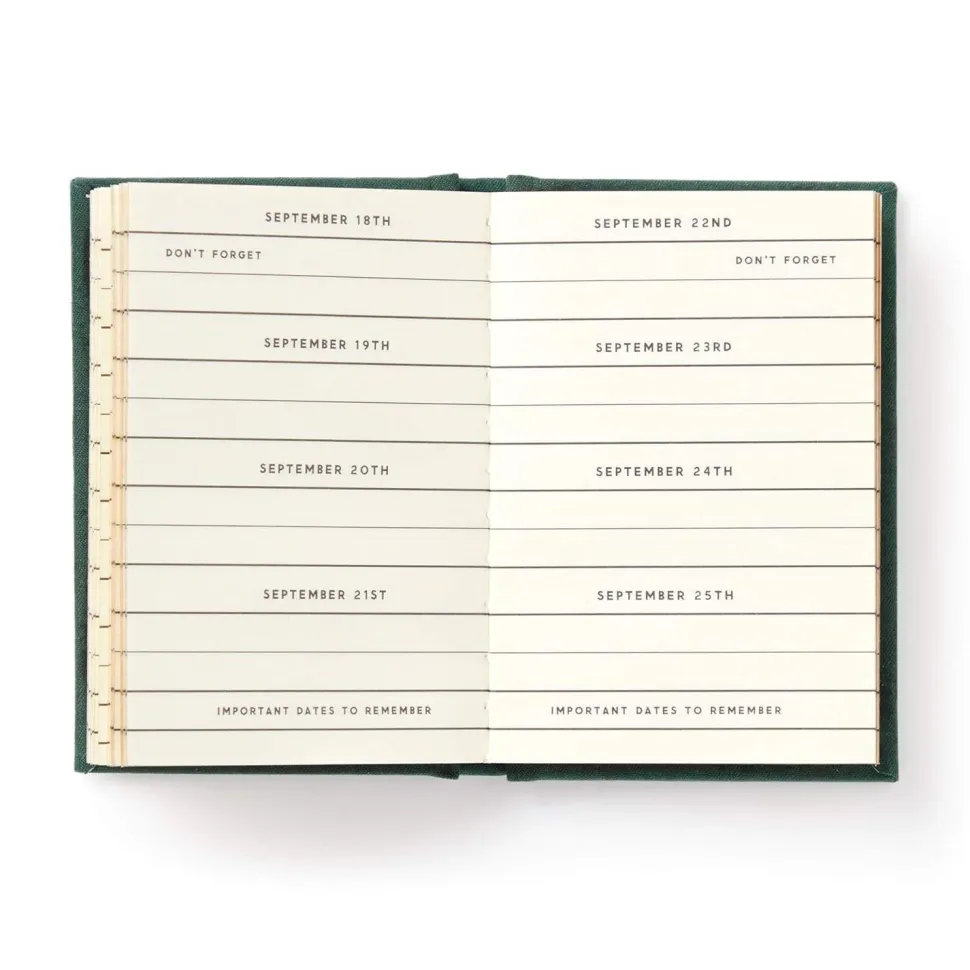 SEPTEMBER 18TH
DON'T FORGET
SEPTEMBER 19TH
SEPTEMBER 20TH
SEPTEMBER 21ST
IMPORTANT DATES TO REMEMBER
SEPTEMBER 22ND
DON'T FORGET
SEPTEMBER 23RD
SEPTEMBER 24TH
SEPTEMBER 25TH
IMPORTANT DATES TO REMEMBER